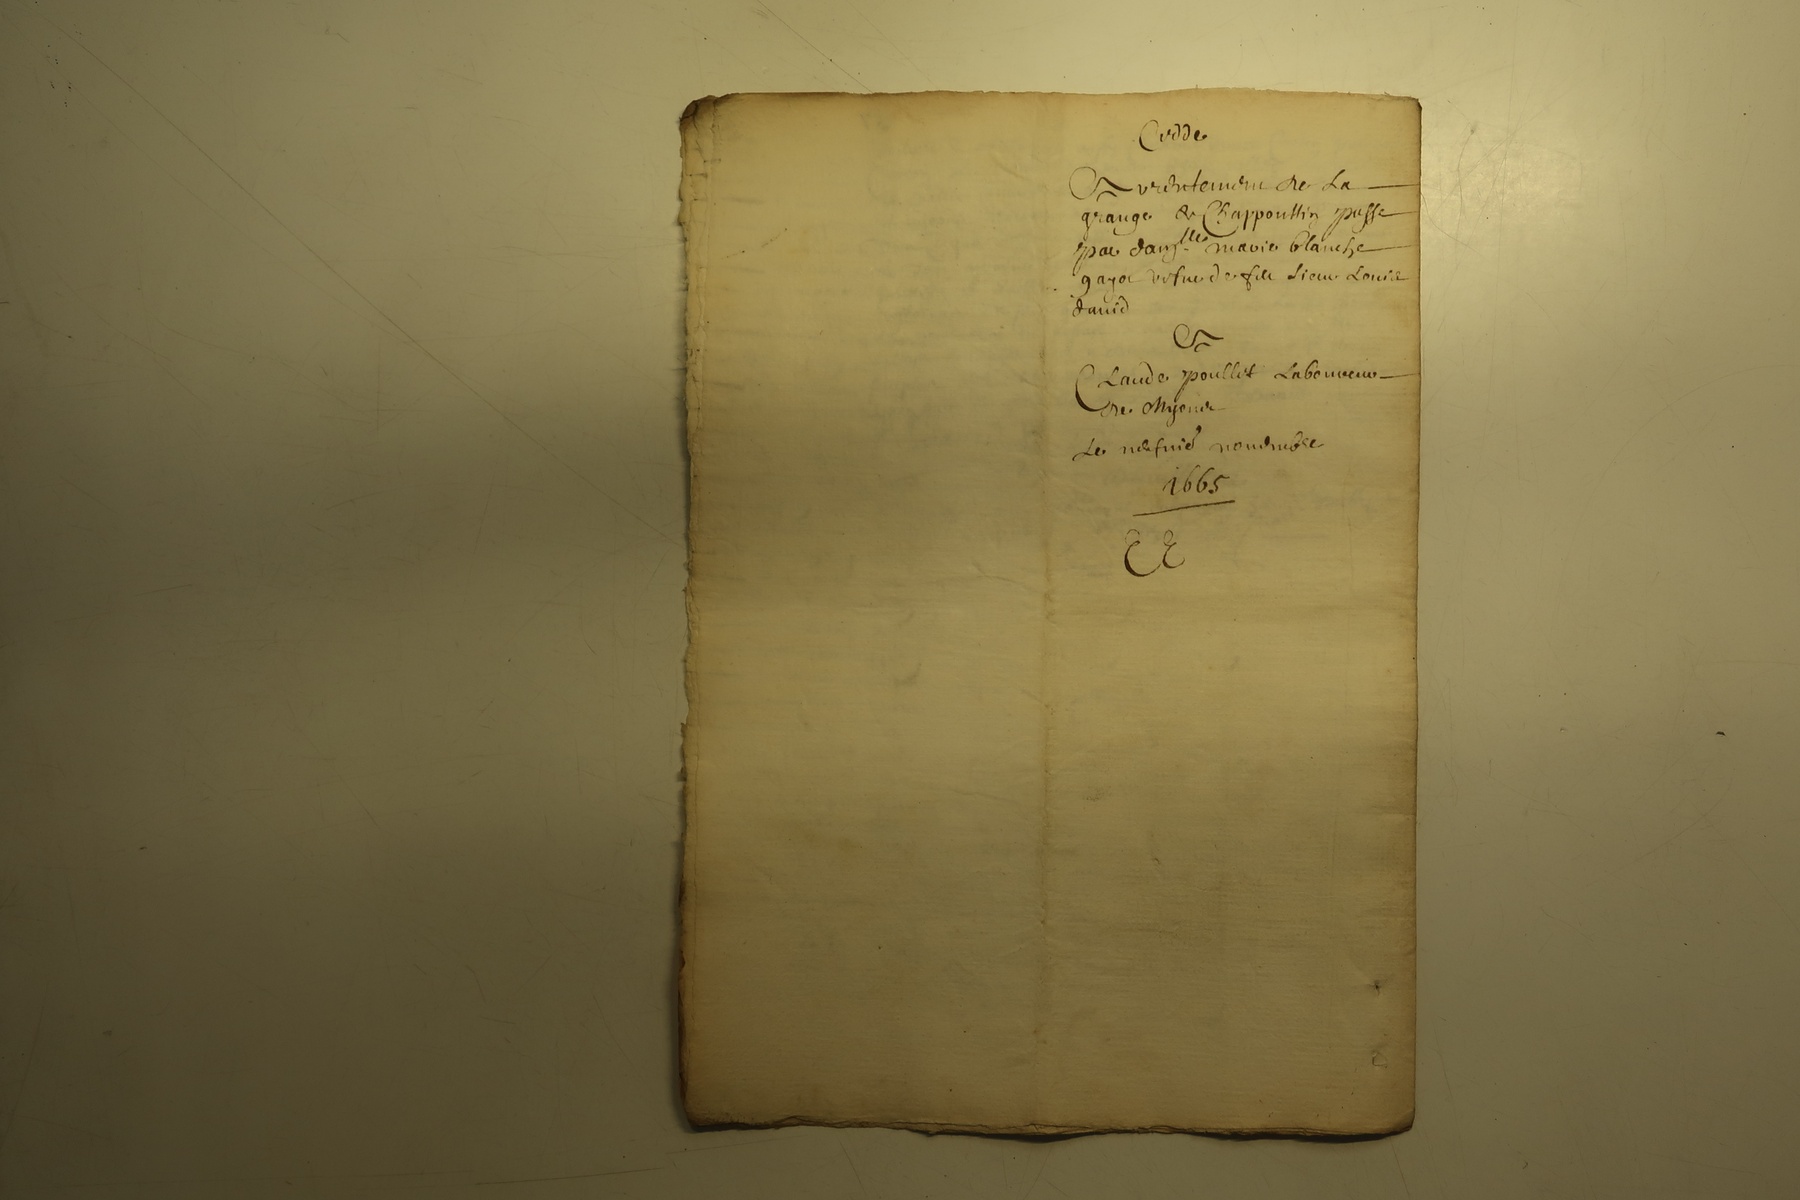 Cedde
A
grange de Chappouttin passe
par dam^lle marie blanche
gayot vefue de feu sieur Louis
dauid
A
Claude poullet Laboureur
de Myonne
Le nefuie^ nouembre
1665